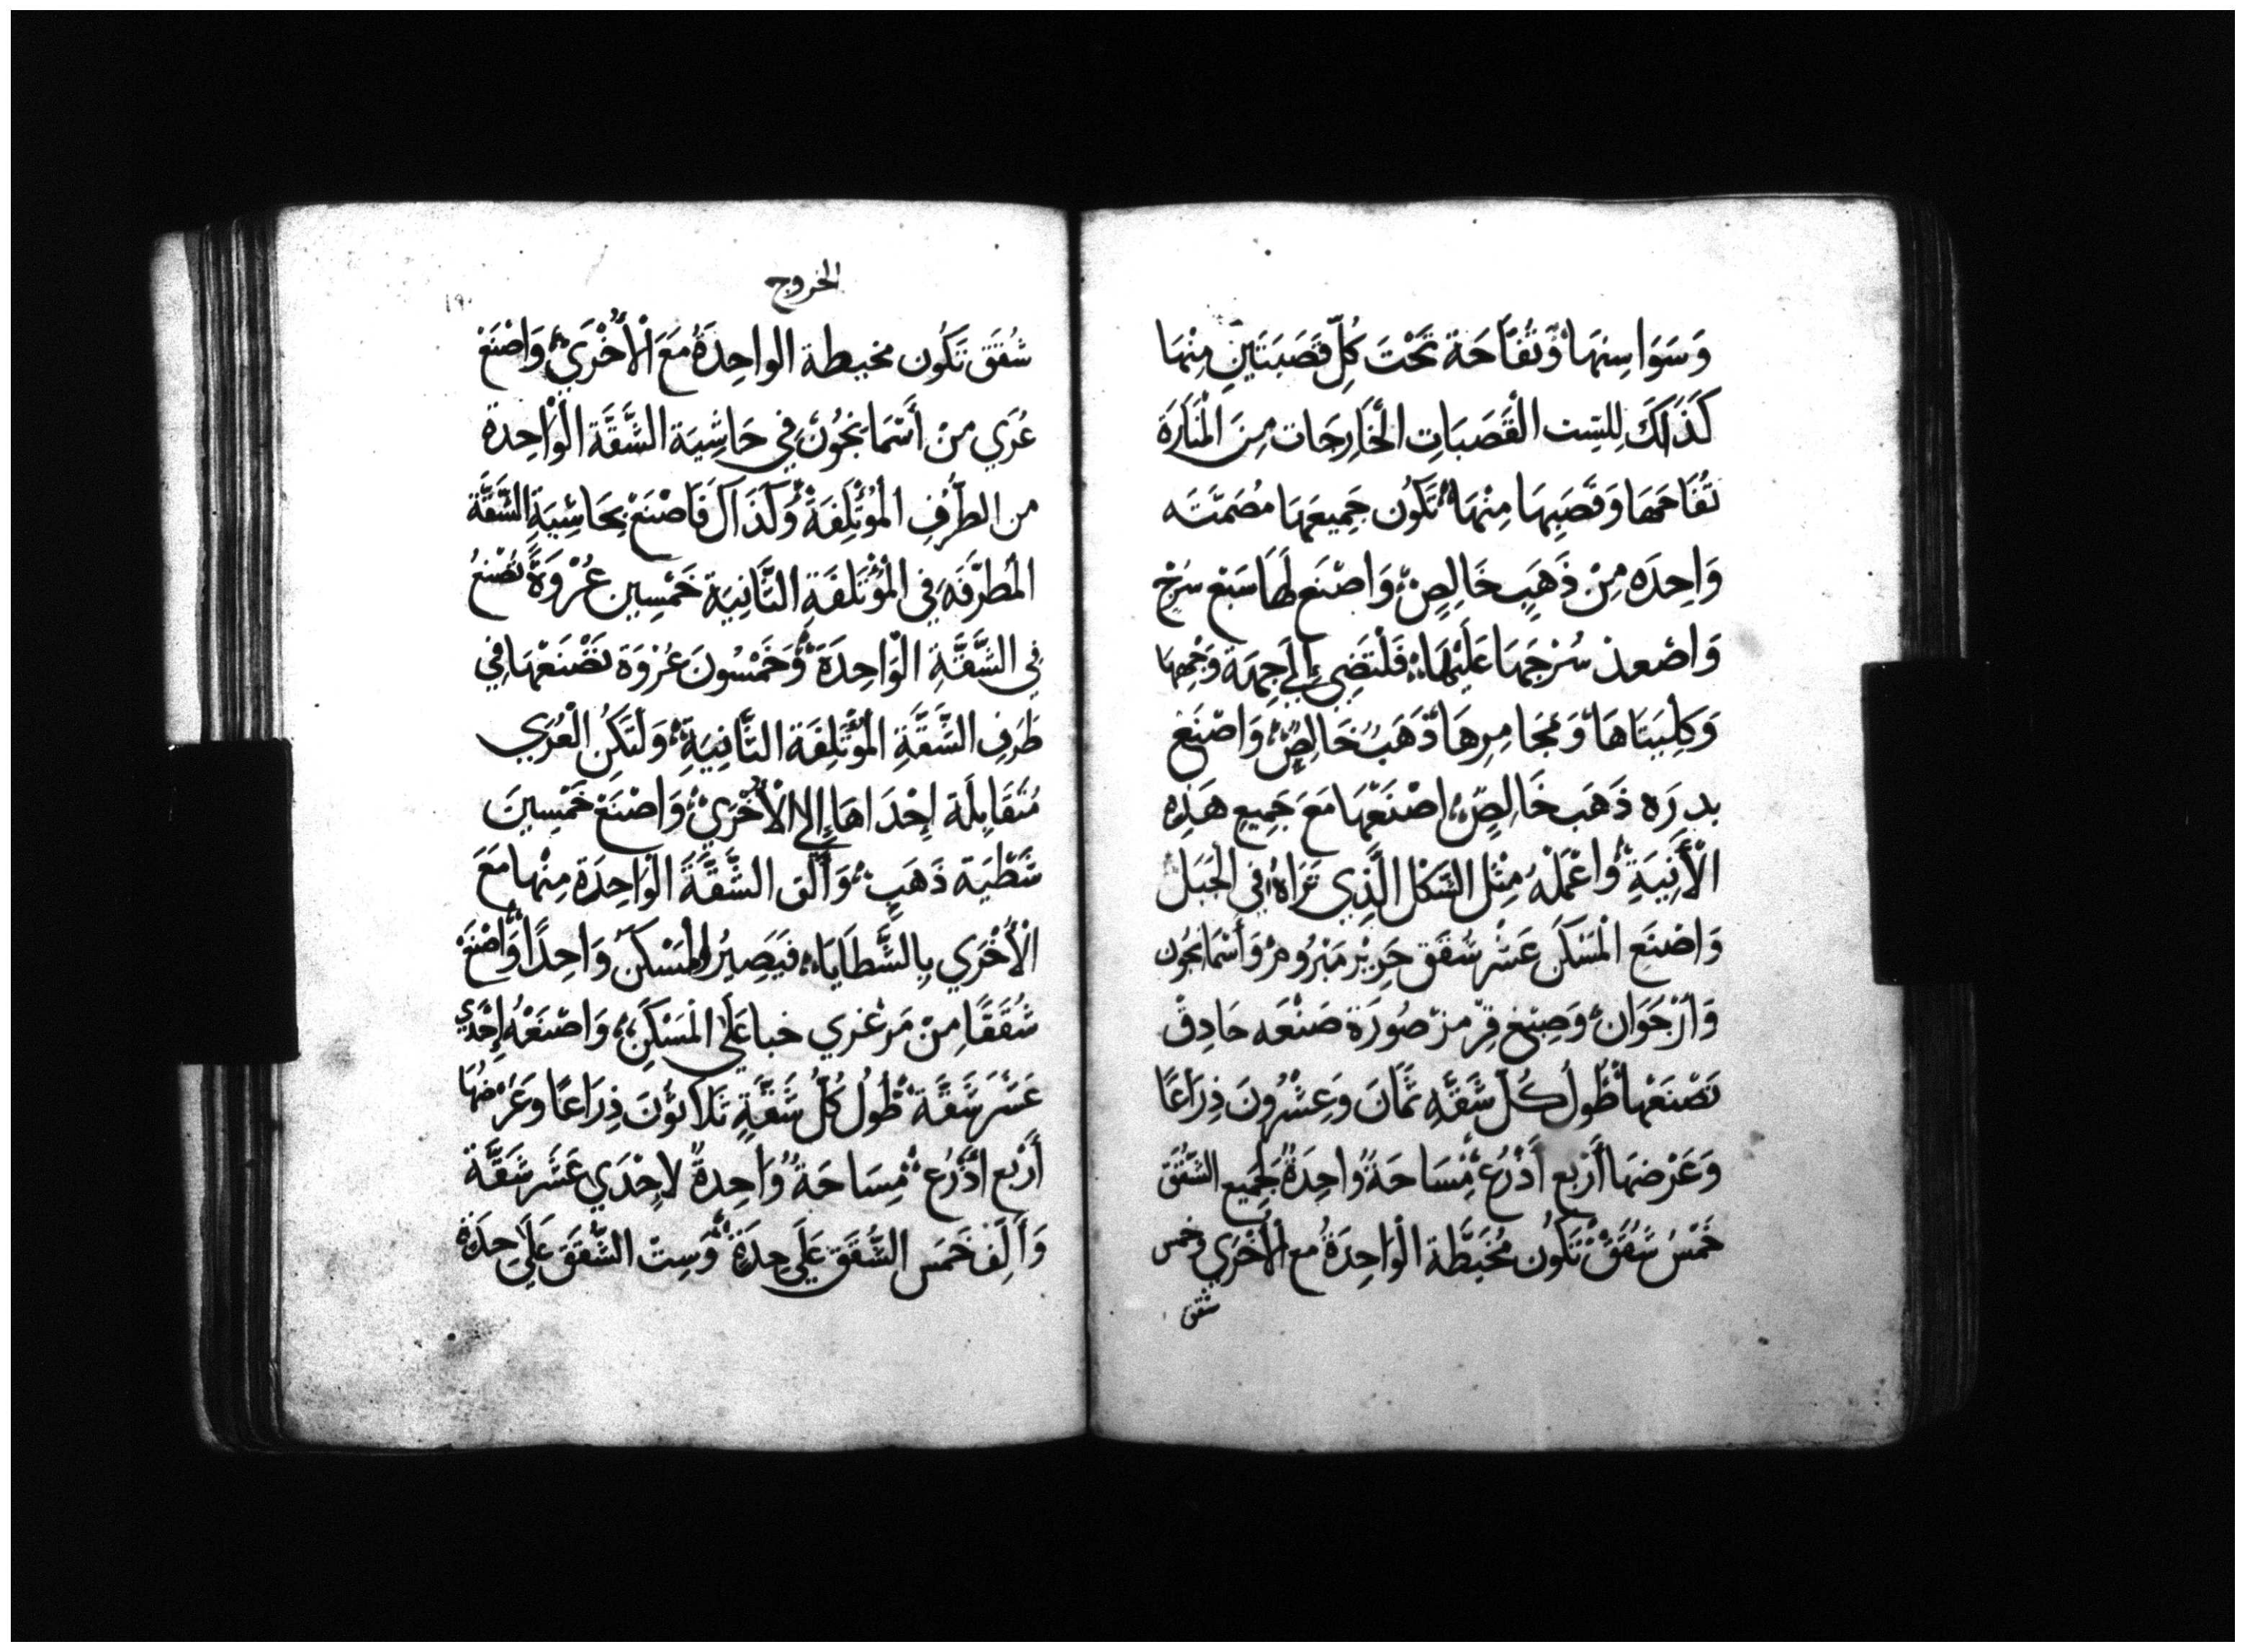 وَسَوَاسِنِهَا وَتُفَّاحَة تَحْتَ كُلِّ قَصَبَتَيْنِ مِنْهَا
كَذَلَكَ لِلسِّت الْقَصَبَاتِ الْخَارِجَات مِنَ الْمَنَارَةِ
تُفَاحَهَا وَقَصَبِهَا مِنْهَا تَكُون جَمِيعَهَا مُصَمَتَه
وَاحِدَه مِنْ ذَهَبٍ خَالِصٍ وَاصْنَع لَهَا سَبْع سُرْج
وَاصْعد سُرْجَهَا عَلَيْهَا فَلْتَضِي إِلَى جِهَة وَجْهِهَا
وَكَلِبَتَاهَا وَمَجَامِرهَا ذَهَبٌ خَالِصٌ وَاصْنَع
بدرَه ذَهَب خَالِصٍ اصْنَعْهَا مَعَ جَمِيعِ هَذِهِ
الْأَنِيَةِ وَاعْمَلْهُ مِثْل الشَّكْل الَّذِي تَرَاهُ فِي الْجَبَل
وَاصْنَعِ الْمَسْكَن عَشْر شُقَق حَرِيْر مَبْرُومْ وَأَسْمَانجُون
وَأَرْجَوَان وَصِبْغ قِرْمزْ صُورَة صَنْعَه حَادِق
تَصْنَعْهَا طُول كُلّ شَقَّه ثَمَانَ وَعِشْرُونَ ذِرَاعًا
وَعَرْضهَا أَرْبع أَذْرُع مِسَاحَةً وَاحِدَةً لِجَمِيع الشُّقَق
خَمْسُ شُقَقْ تَكُون مُخَيَّطَة الْوَاحِدَةُ مع الْأُخْرَي وخمس
شقق
الخروج
١٩٠
شُقَق تَكُون مخيطة الواحِدَةُ مَعَ الْأُخْرَي وَاصْنَع
عُرَي مِنْ أَسْمَانجُون فِي حَاشِيَة الشَّقَّة الْوَاحِدة
من الطَّرَفِ الْمُؤْتَلِفَةْ وَكَذَاكَ فَاصْنَعْ بِحَاشِيَةِ الشَّقَّة
الْمُطَرَّفَه فِي الْمُؤْتَلَفَةِ الثَّانِيَة خَمْسِين عُرْوَةً تَصْنَعُ
فِي الشَّقَّةِ الْوَاحِدَة وَخَمْسُونَ عُرْوَة تَصْنَعْهَا فِي
طَرَفِ الشَّقَّةِ الْمُؤْتَلِفَة الثَّانِيَةِ وَلْتَكِن الْعُرَي
مُتَقَابِلَة إِحْدَاهَا إِلى الْأُخْرَيْ وَاصْنَعْ خَمْسِينَ
شَظْيَة ذَهَبٍ وَأَلّق الشَّقَّةَ الْوَاحِدَة مِنْهَا مَعَ
الْأُخْرَي بِالشَّظَايَا فَيَصِيرُ الْمَسْكَن وَاحِدًا وَاصْنَعْ
شُقَقًا مِنْ مَرْعْزي خبا عَلَى الْمَسْكَنِ وَاصْنَعْهُ إِحْدَي
عَشَر شَقَّة طُولُ كُلُّ شَقَّةٍ ثَلَاثوُنَ ذِرَاعًا وَعَرْضهَا
أَرْبع أَذْرُع مِسَاحَةً وَاحِدةً لاِحْدَي عَشَر شَقَّة
وَأَلِف خَمْسَ الشُّقَق عَلَى حِدَةٍ وَسِت الشُّقَق عَلَي حِدَةٍ